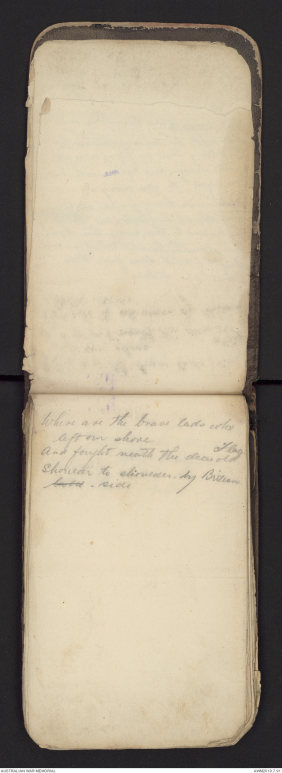 Where are the brave lads who
left our shore
And fought neath the dear old Flag
Shoulder to shoulder by Britain
bold side
AUSTRALIAN WAR MEMORIAL